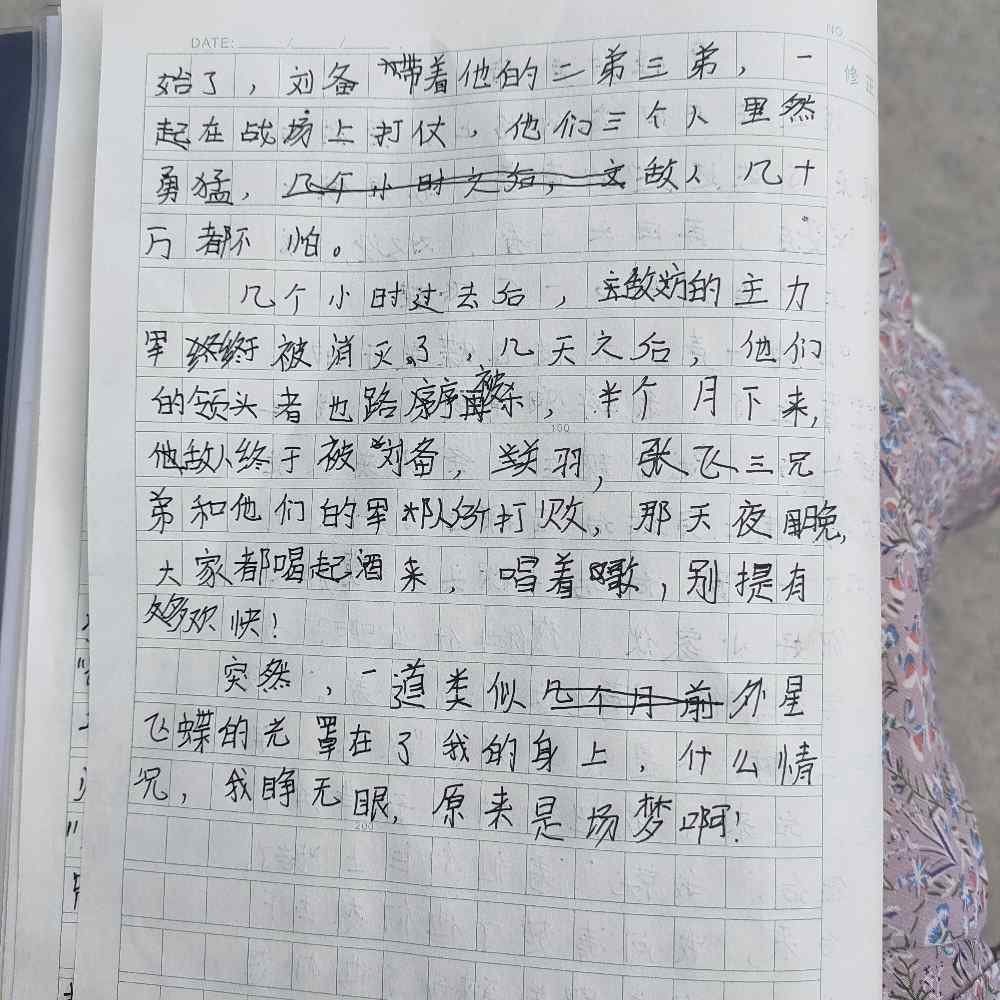 DATE: / / .
NO
修正
始了，刘备带着他的二弟三弟，一
起在战场上打仗，他们三个人里然
勇猛，敌人几十
万都不怕。
几个小时过去后，敌方的主力
军终于被消灭了，几天之后，他们
的领头者也路序被杀，半个月下来，
100
他敌人终于被刘备，关羽，张飞三兄
弟和他们的军队所打败，那天夜晚，
大家都喝起酒来，唱着歌，别提有
多欢快！
突然，一道类似外星
飞蝶的光罩在了我的身上，什么情
况，我睁无眼，原来是场梦啊！
200